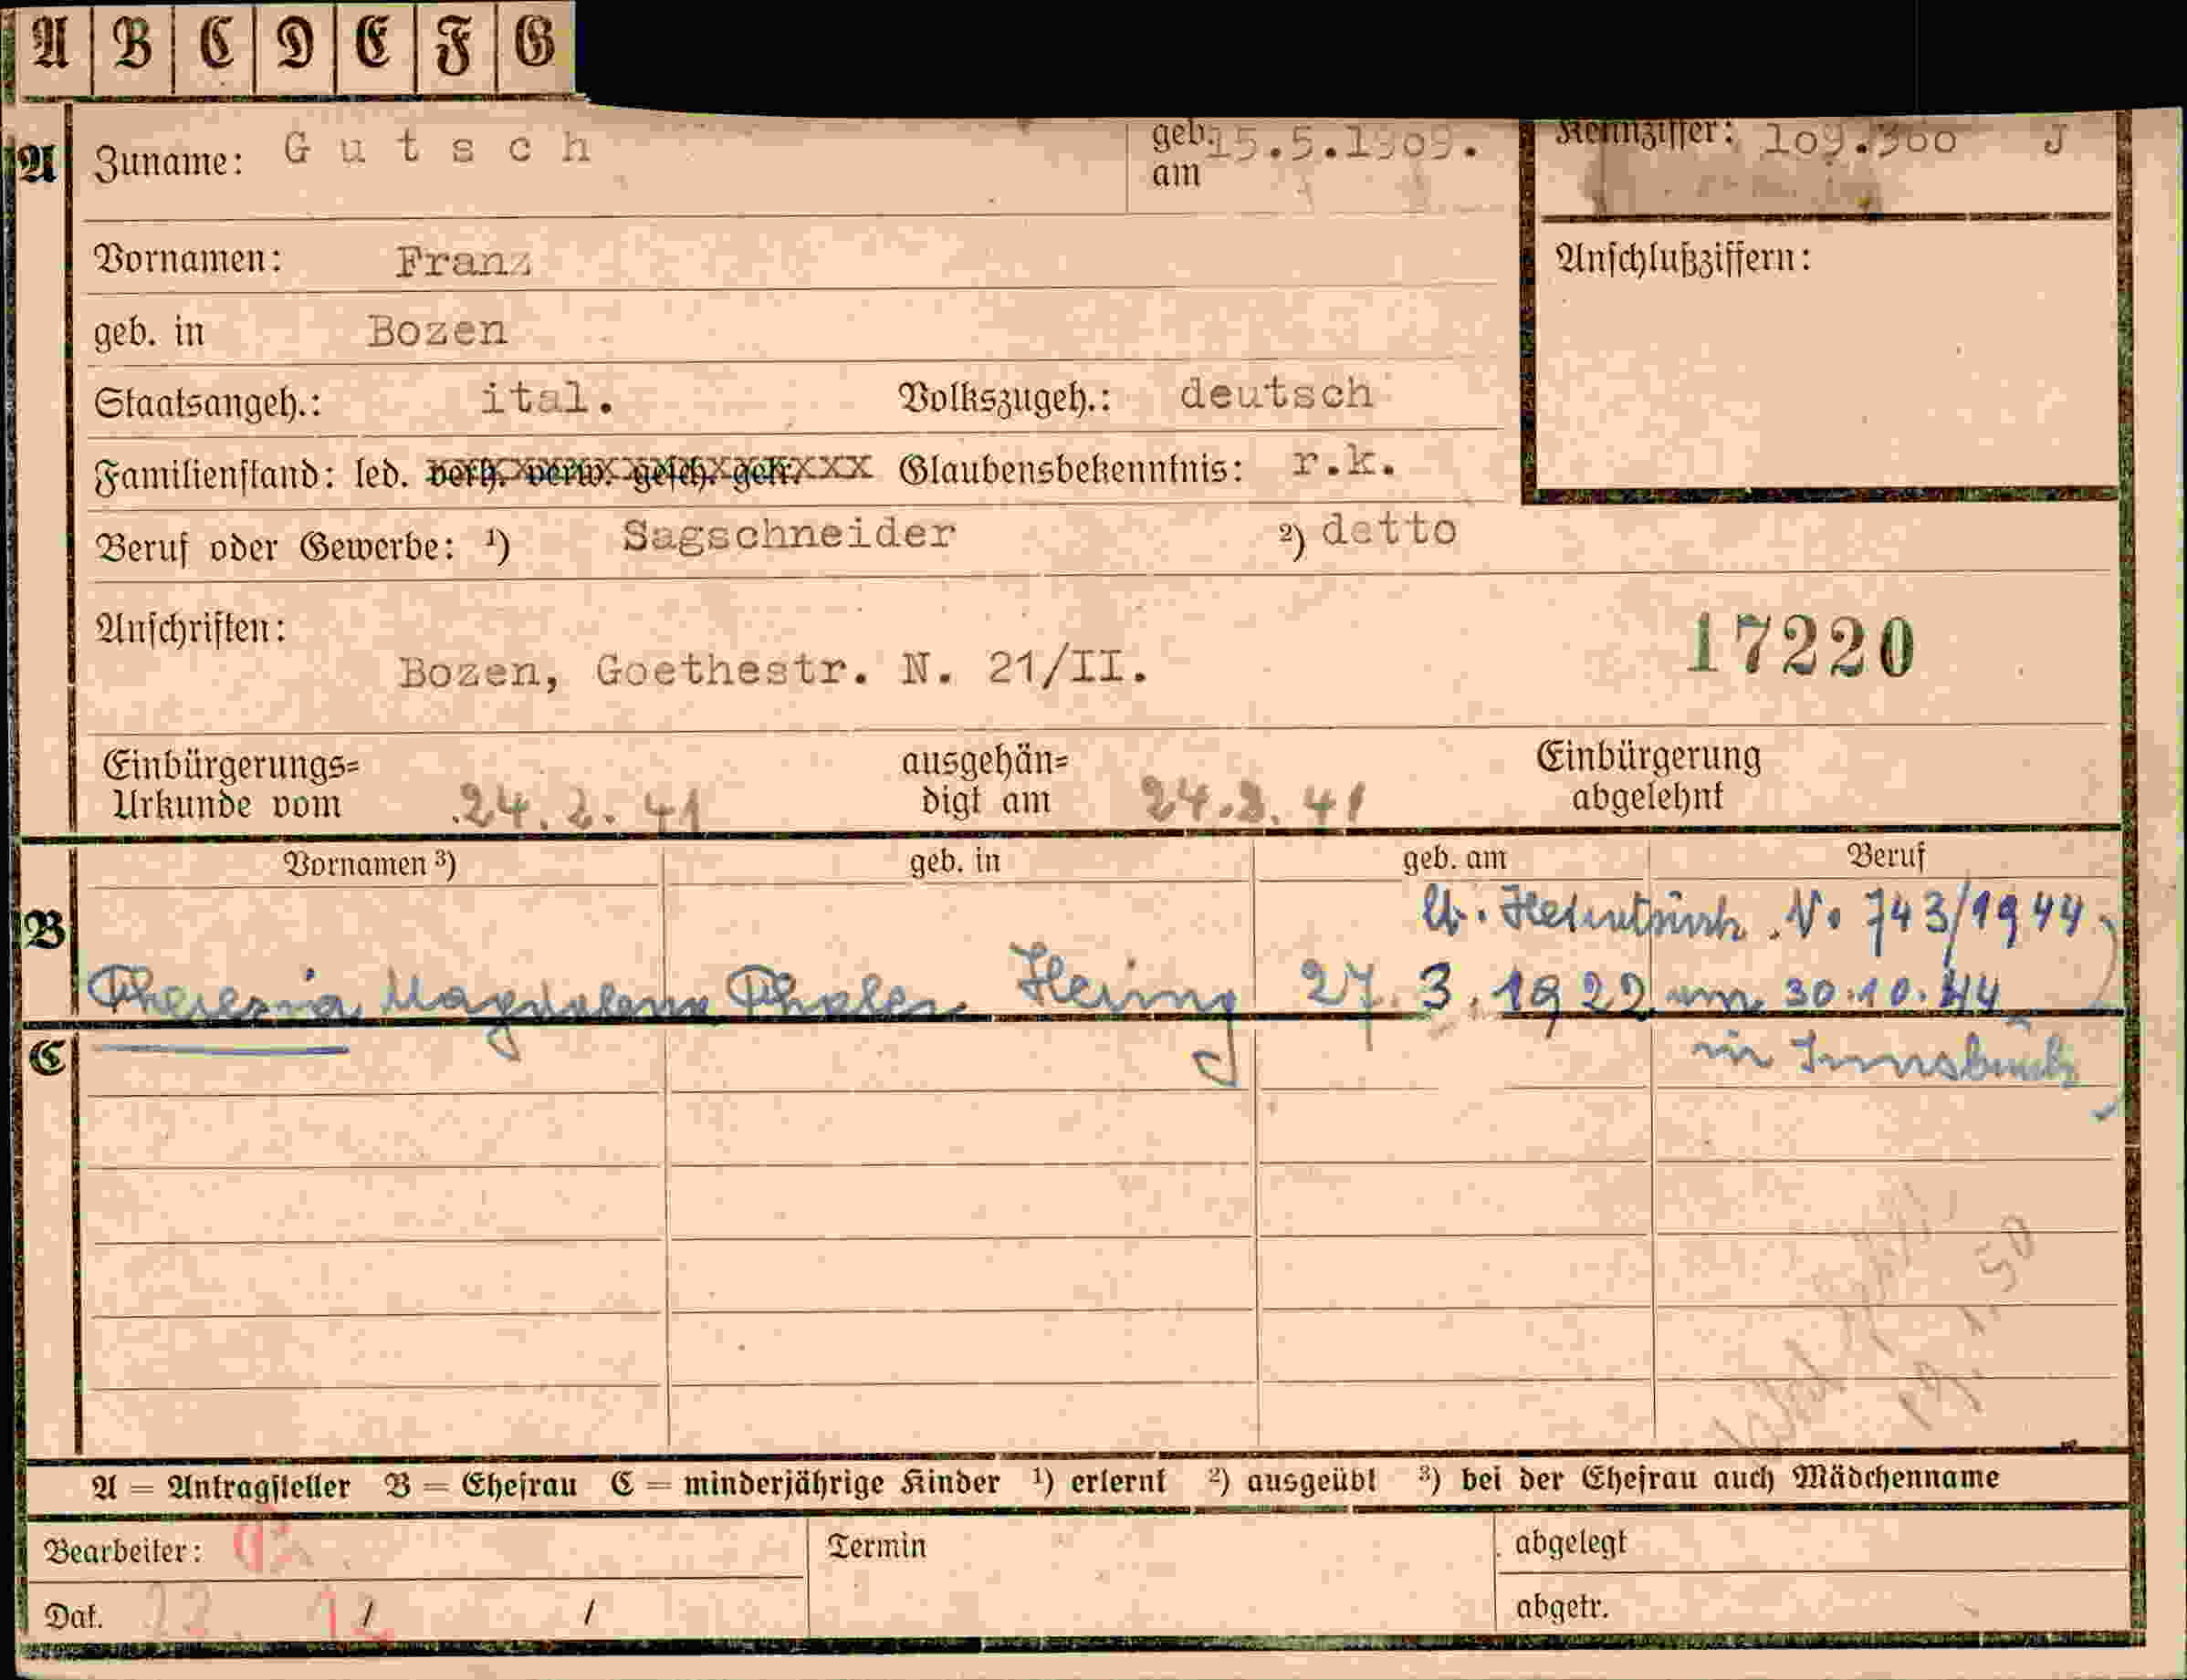 A B C D E F G
A Zuname: Gutsch geb. am 15.5.1909. Kennziffer: 109.300 J
Vornamen: Franz Anschlußziffern:
geb. in Bozen
Staatsangeh.: ital. Volkszugeh.: deutsch
Familienstand: led. verh. verw. gesch. getr. Glaubensbekenntnis: r.k.
Beruf oder Gewerbe: ¹) Sagschneider ²) detto
Anschriften: 17220
Bozen, Goethestr. N. 21/II.
Einbürgerungs= ausgehän= Einbürgerung
Urkunde vom 24.2.41 digt am 24.3.41 abgelehnt
Vornamen ³) geb. in geb. am Beruf
B No 743/1944
Theresia Magdalena Thaler 27.3.1922 am 30.10.44
C in Innsbruck
19.1.50
A = Antragsteller B = Ehefrau C = minderjährige Kinder ¹) erlernt ²) ausgeübt ³) bei der Ehefrau auch Mädchenname
Bearbeiter: Termin abgelegt
Dat. / / abgetr.